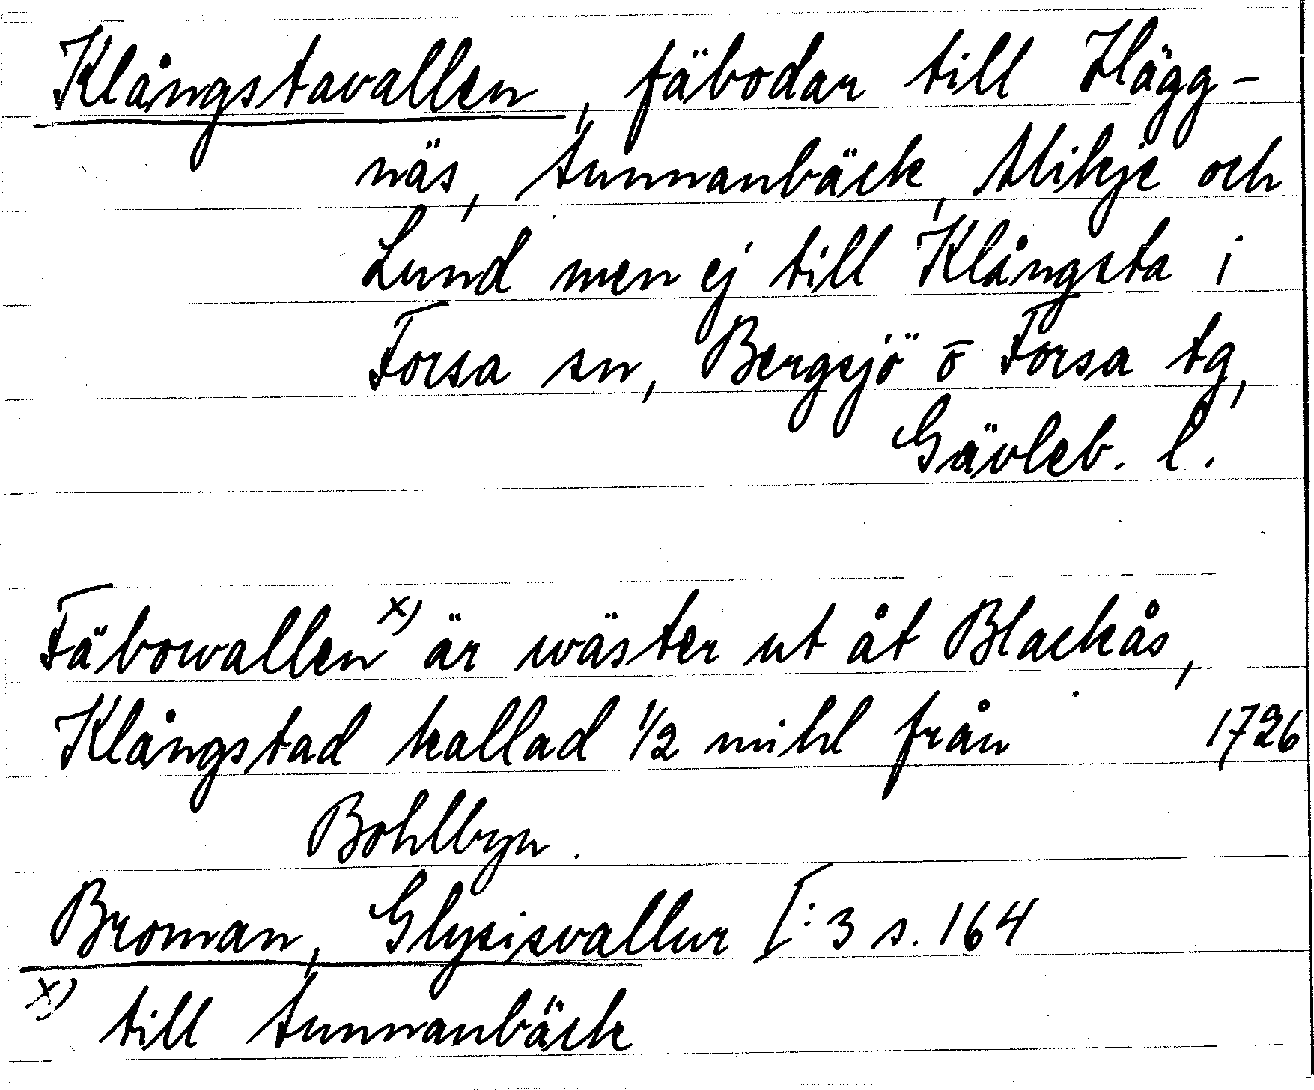 Klångstavallen, fäbodar till Hägg-
näs, Sunnanbäck, Utibyje och
Lund men ej till Klångsta i
Forsa sn, Bergsjö o Forsa tg,
Gävleb. l.
Fäbowallen x) är wäster ut åt Blackås,
Klångstad kallad 1/2 mihl från 1726
Bohlbyn.
Broman, Glysisvallur I:3 s. 164
x) till Sunnanbäck